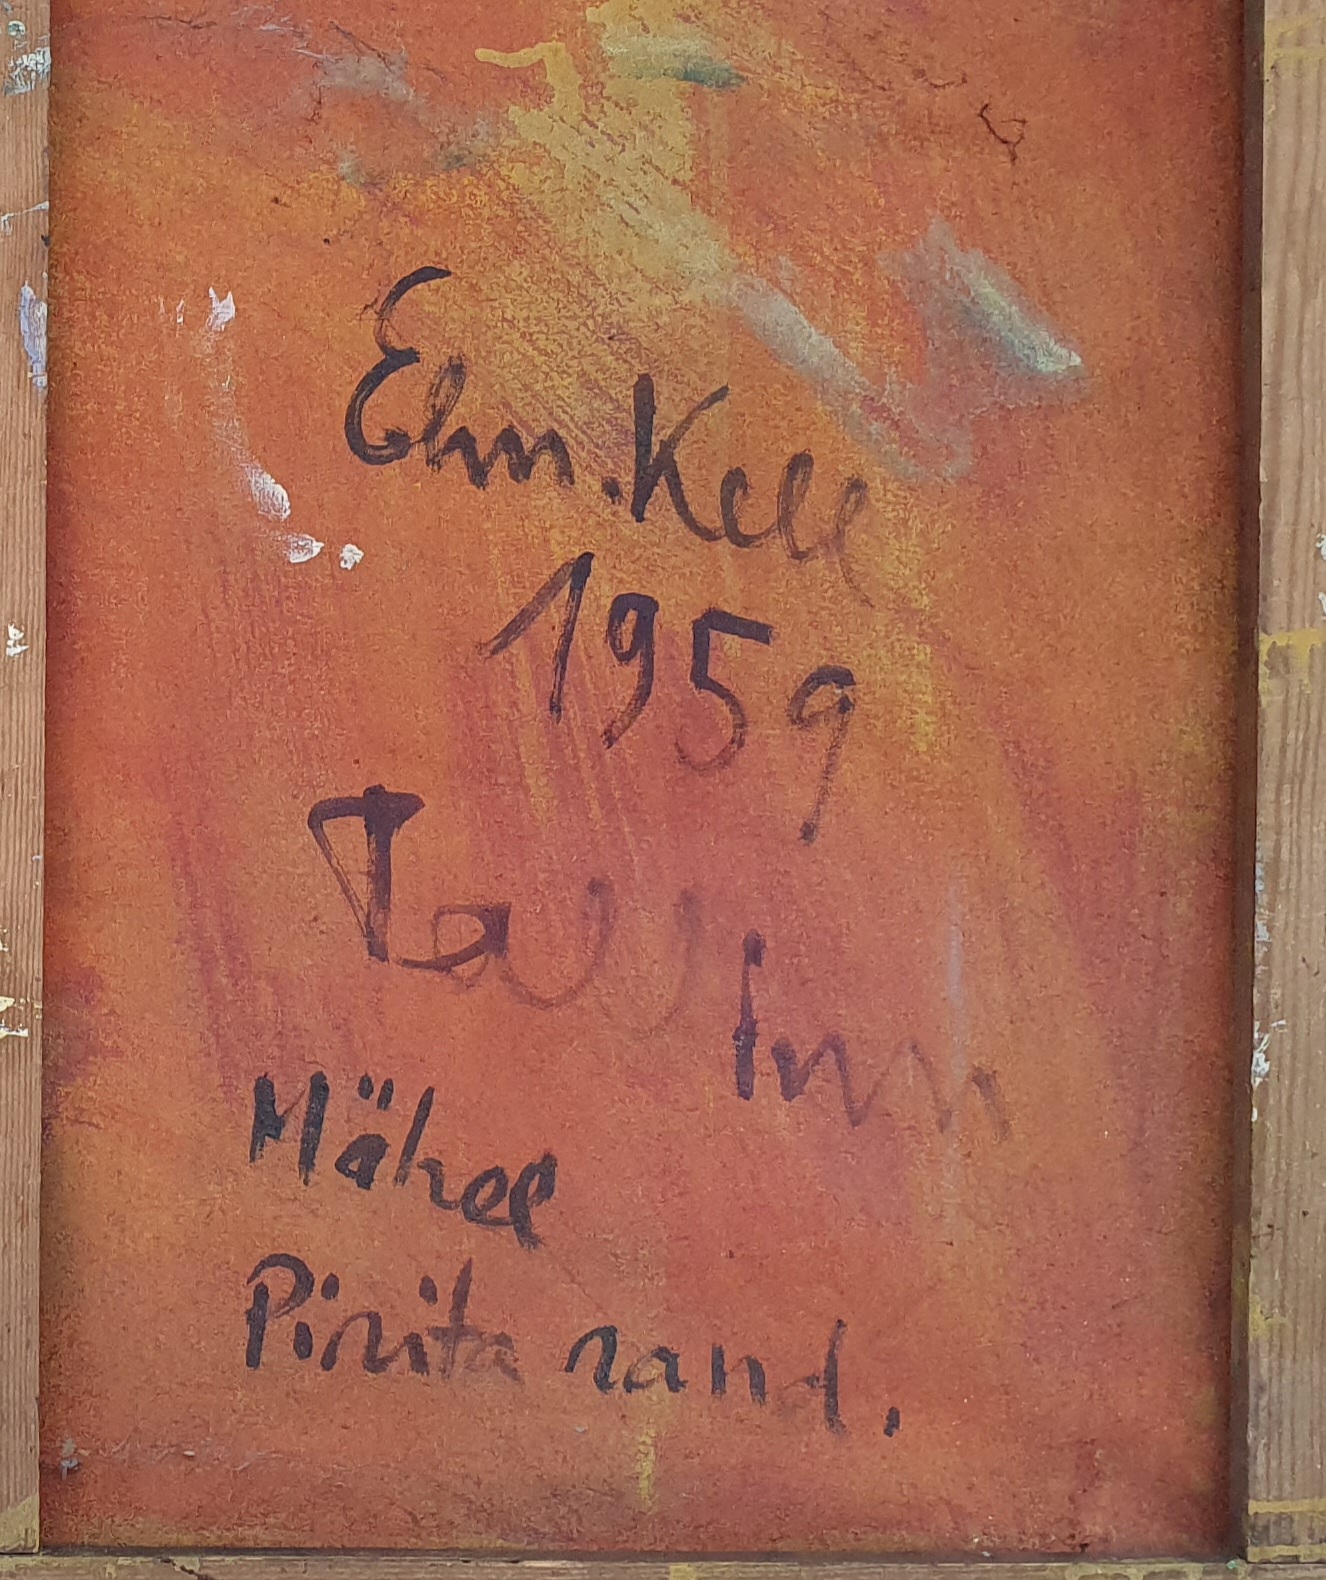 Elm. Kell
1959
Tallinn
Mähel
Pirita rand.